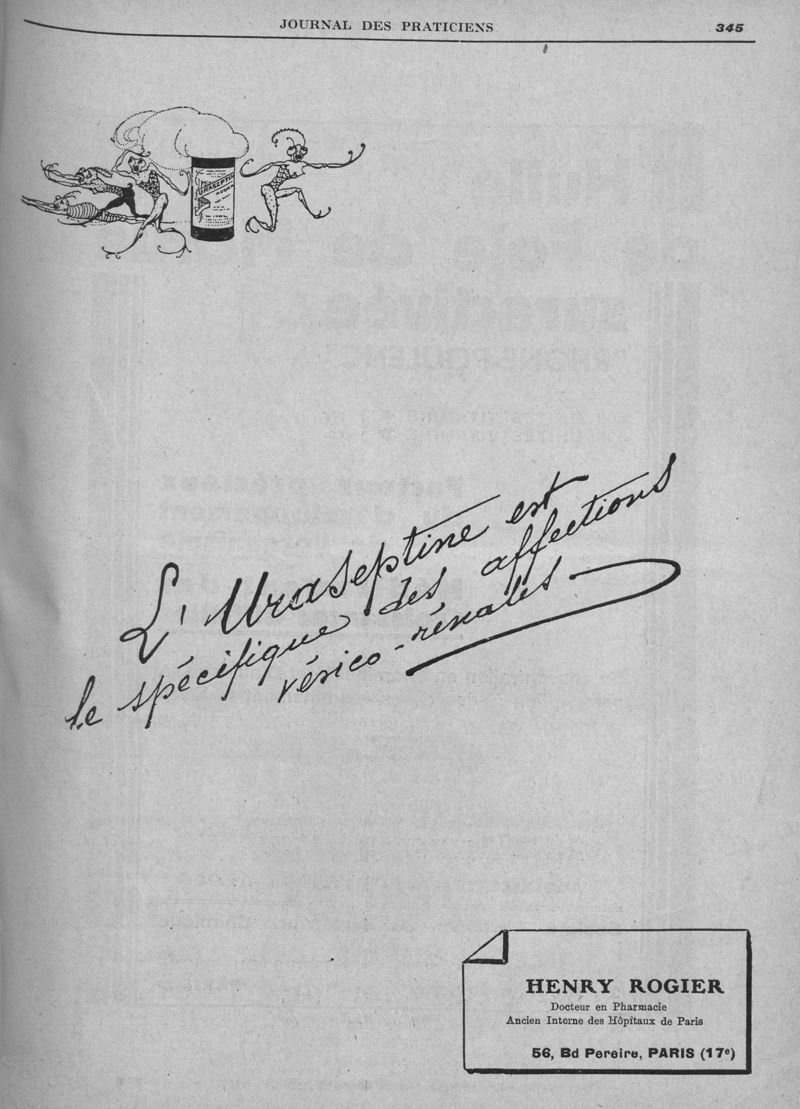 JOURNAL DES PRATICIENS 345
URASEPTINE
ROGIER
L'Uraseptine est
le spécifique des affections
vésico-rénales
HENRY ROGIER
Docteur en Pharmacie
Ancien Interne des Hôpitaux de Paris
56, Bd Pereire, PARIS (17e)